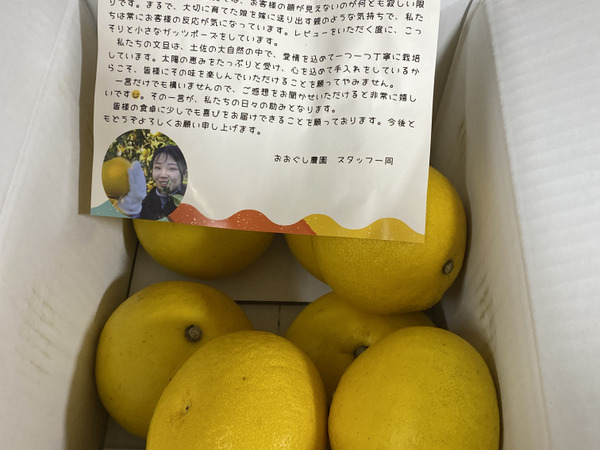 は、お客様の顔が見えないのが何とも寂しい限
りです。まるで、大切に育てた娘を嫁に送り出す親のような気持ちで、私た
ちは常にお客様の反応が気になっています。レビューをいただく度に、こっ
そりと小さなガッツポーズをしています。
私たちの文旦は、土佐の大自然の中で、愛情を込めて一つ一つ丁寧に栽培
しています。太陽の恵みをたっぷりと受け、心を込めて手入れをしているか
らこそ、皆様にその味を楽しんでいただけることを願ってやみません。
一言だけでも構いませんので、ご感想をお聞かせいただけると非常に嬉し
いです😊。その一言が、私たちの日々の励みとなります。
皆様の食卓に少しでも喜びをお届けできることを願っております。今後と
もどうぞよろしくお願い申し上げます。
おおぐし農園 スタッフ一同